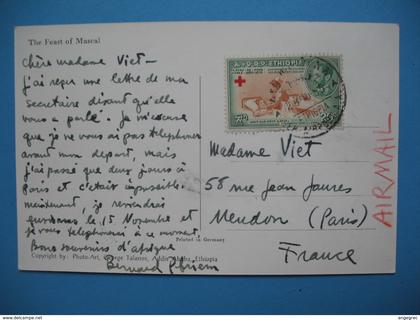 The Feast of Mascal
Chère madame Viet-
j'ai reçu une lettre de ma
secretaire disant qu'elle
vous a parlé. Je m'excuse
que je ne vous ai pas telephoner
avant mon depart, mais
j'ai passé que deux jours à
Paris et c'etait impossible.
maintenant, je reviendrai
le 15 Novembre et
je vous telephonerai à ce moment.
Bons souvenirs d'afrique
Bernard
Printed in Germany
Copyright by: Photo-Art, George Talanos, Addis Ababa, Ethiopia
ETHIOPIA
Madame Viet
58 rue Jean Jaures
Meudon (Paris)
France
AIRMAIL